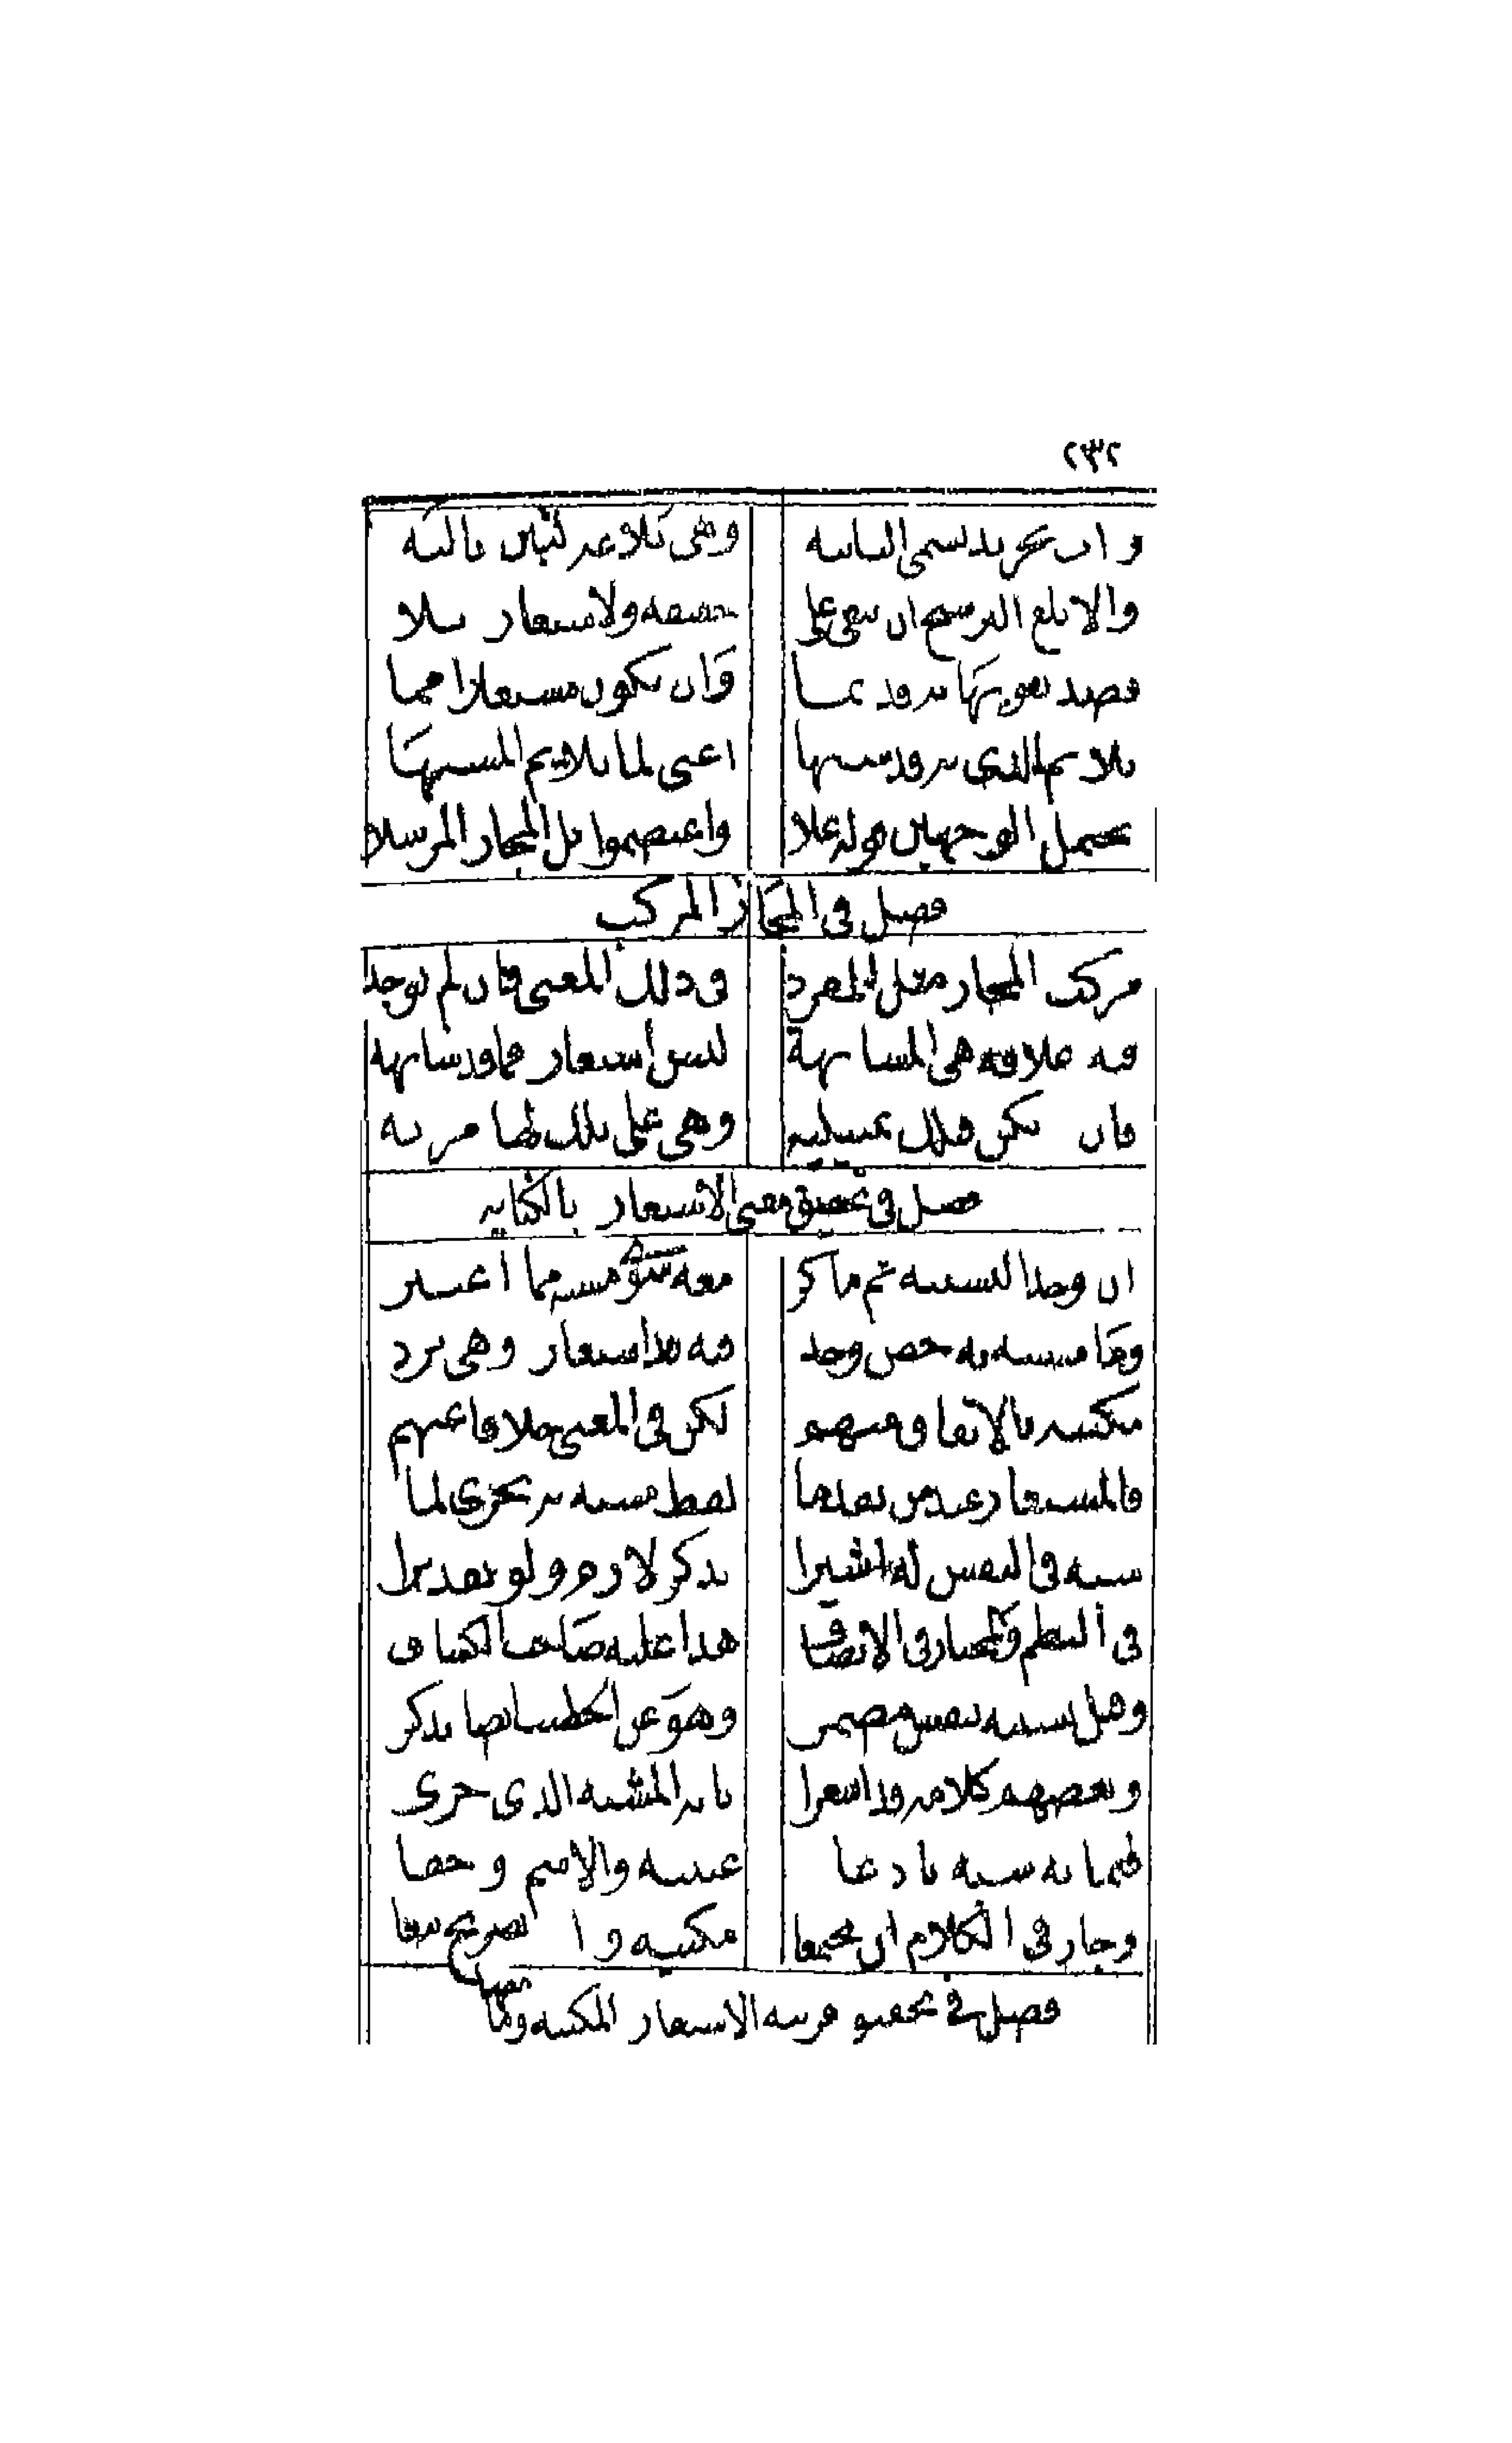 ٢٣٢
وذات تجريد تسمى الثانيه وهى بلا هذين تاليه
والابلغ الترشيح ان يبقى على حقيقة ولا استعار بلا
قصد تقويتها به وقد بما وان يكون مستعارا مما
يلائم الذي به قد شبها اعنى لما يلائم المشبها
يحتمل الوجهين قوله علا واعتصموا بل المجاز المرسلا
فصل فى المجاز المركب
مركب المجاز مثل المفرد فى ذلك المعنى فان لم توجد
فيه علاقة هى المشابهة ليس استعار فما قد شابهه
فان تكن فتلك تمثيليه وهى على تلك لها مزيه
فصل فى تحقيق معنى الاستعار بالكنايه
ان وجد التشبيه ثم ما ذكر معه سوى مشبه مما اعتبر
وما مشبه به خص وجد فيه فذا استعار وهى ترد
مكنيه بالاتفاق منهم لكن فى المعنى خلافا عنهم
فالمستعار عند من تقدما لفظ مشبه به يجرى لما
شبه فى النفس له اشيرا بذكر لازم ولو تقديرا
فى النظم والمختار فى الاتصاف هذا عليه صاحب الكشاف
وهل تشبيه بنفس مضمر وهو عن الخطيب ايضا يذكر
وبعضهم كلامه قد اشعرا بانه المشبه الذى جرى
فيما به شبه بادعا عينيه والاسم وحقا
وجاز فى الكلام ان يجتمعا مكنيه و ا تصريح معا
فصل فى تحقيق قرينه الاستعار المكنيه وما